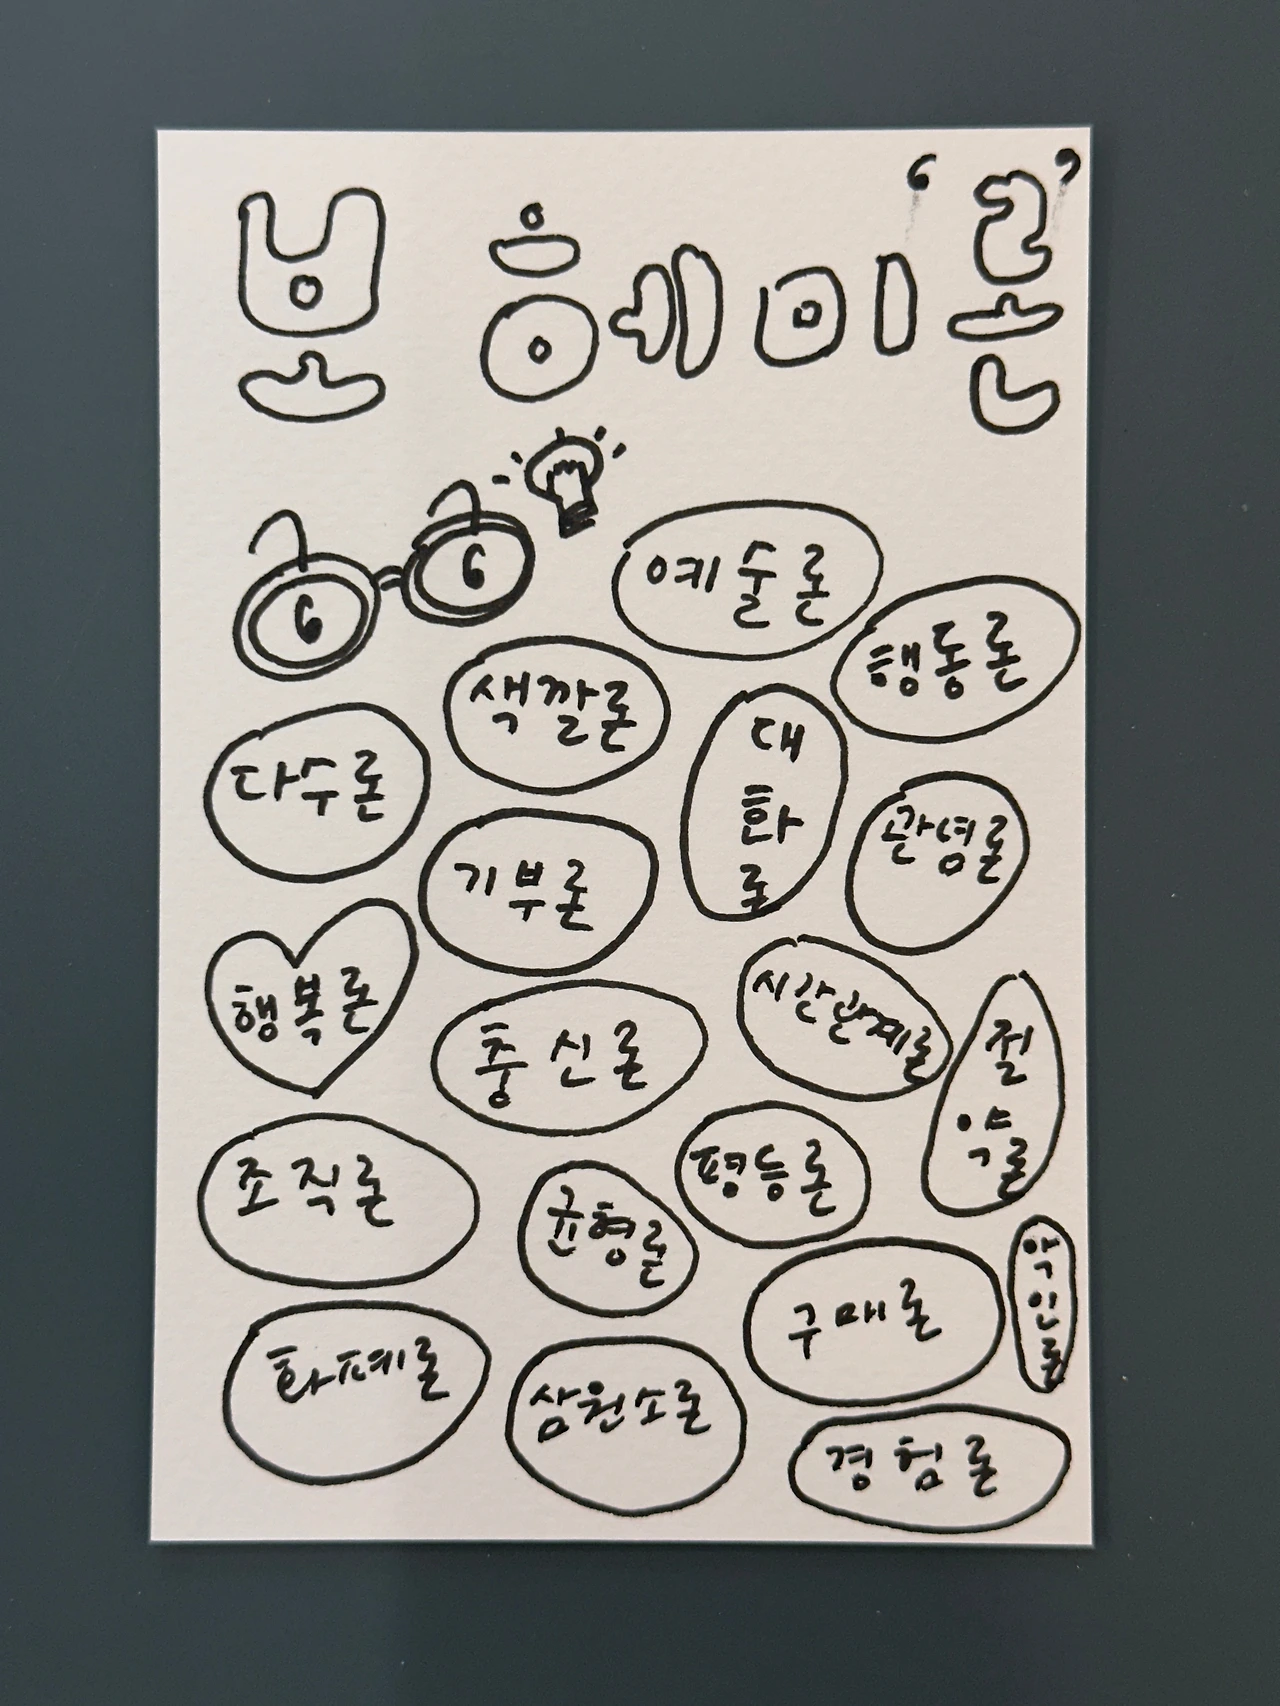 보헤미 '론'
예술론
행동론
색깔론
대
화
론
다수론
관념론
기부론
행복론
시간관계론
충신론
절
약론
조직론
평등론
균형론
악
인
론
구매론
화폐론
삼원소론
경험론